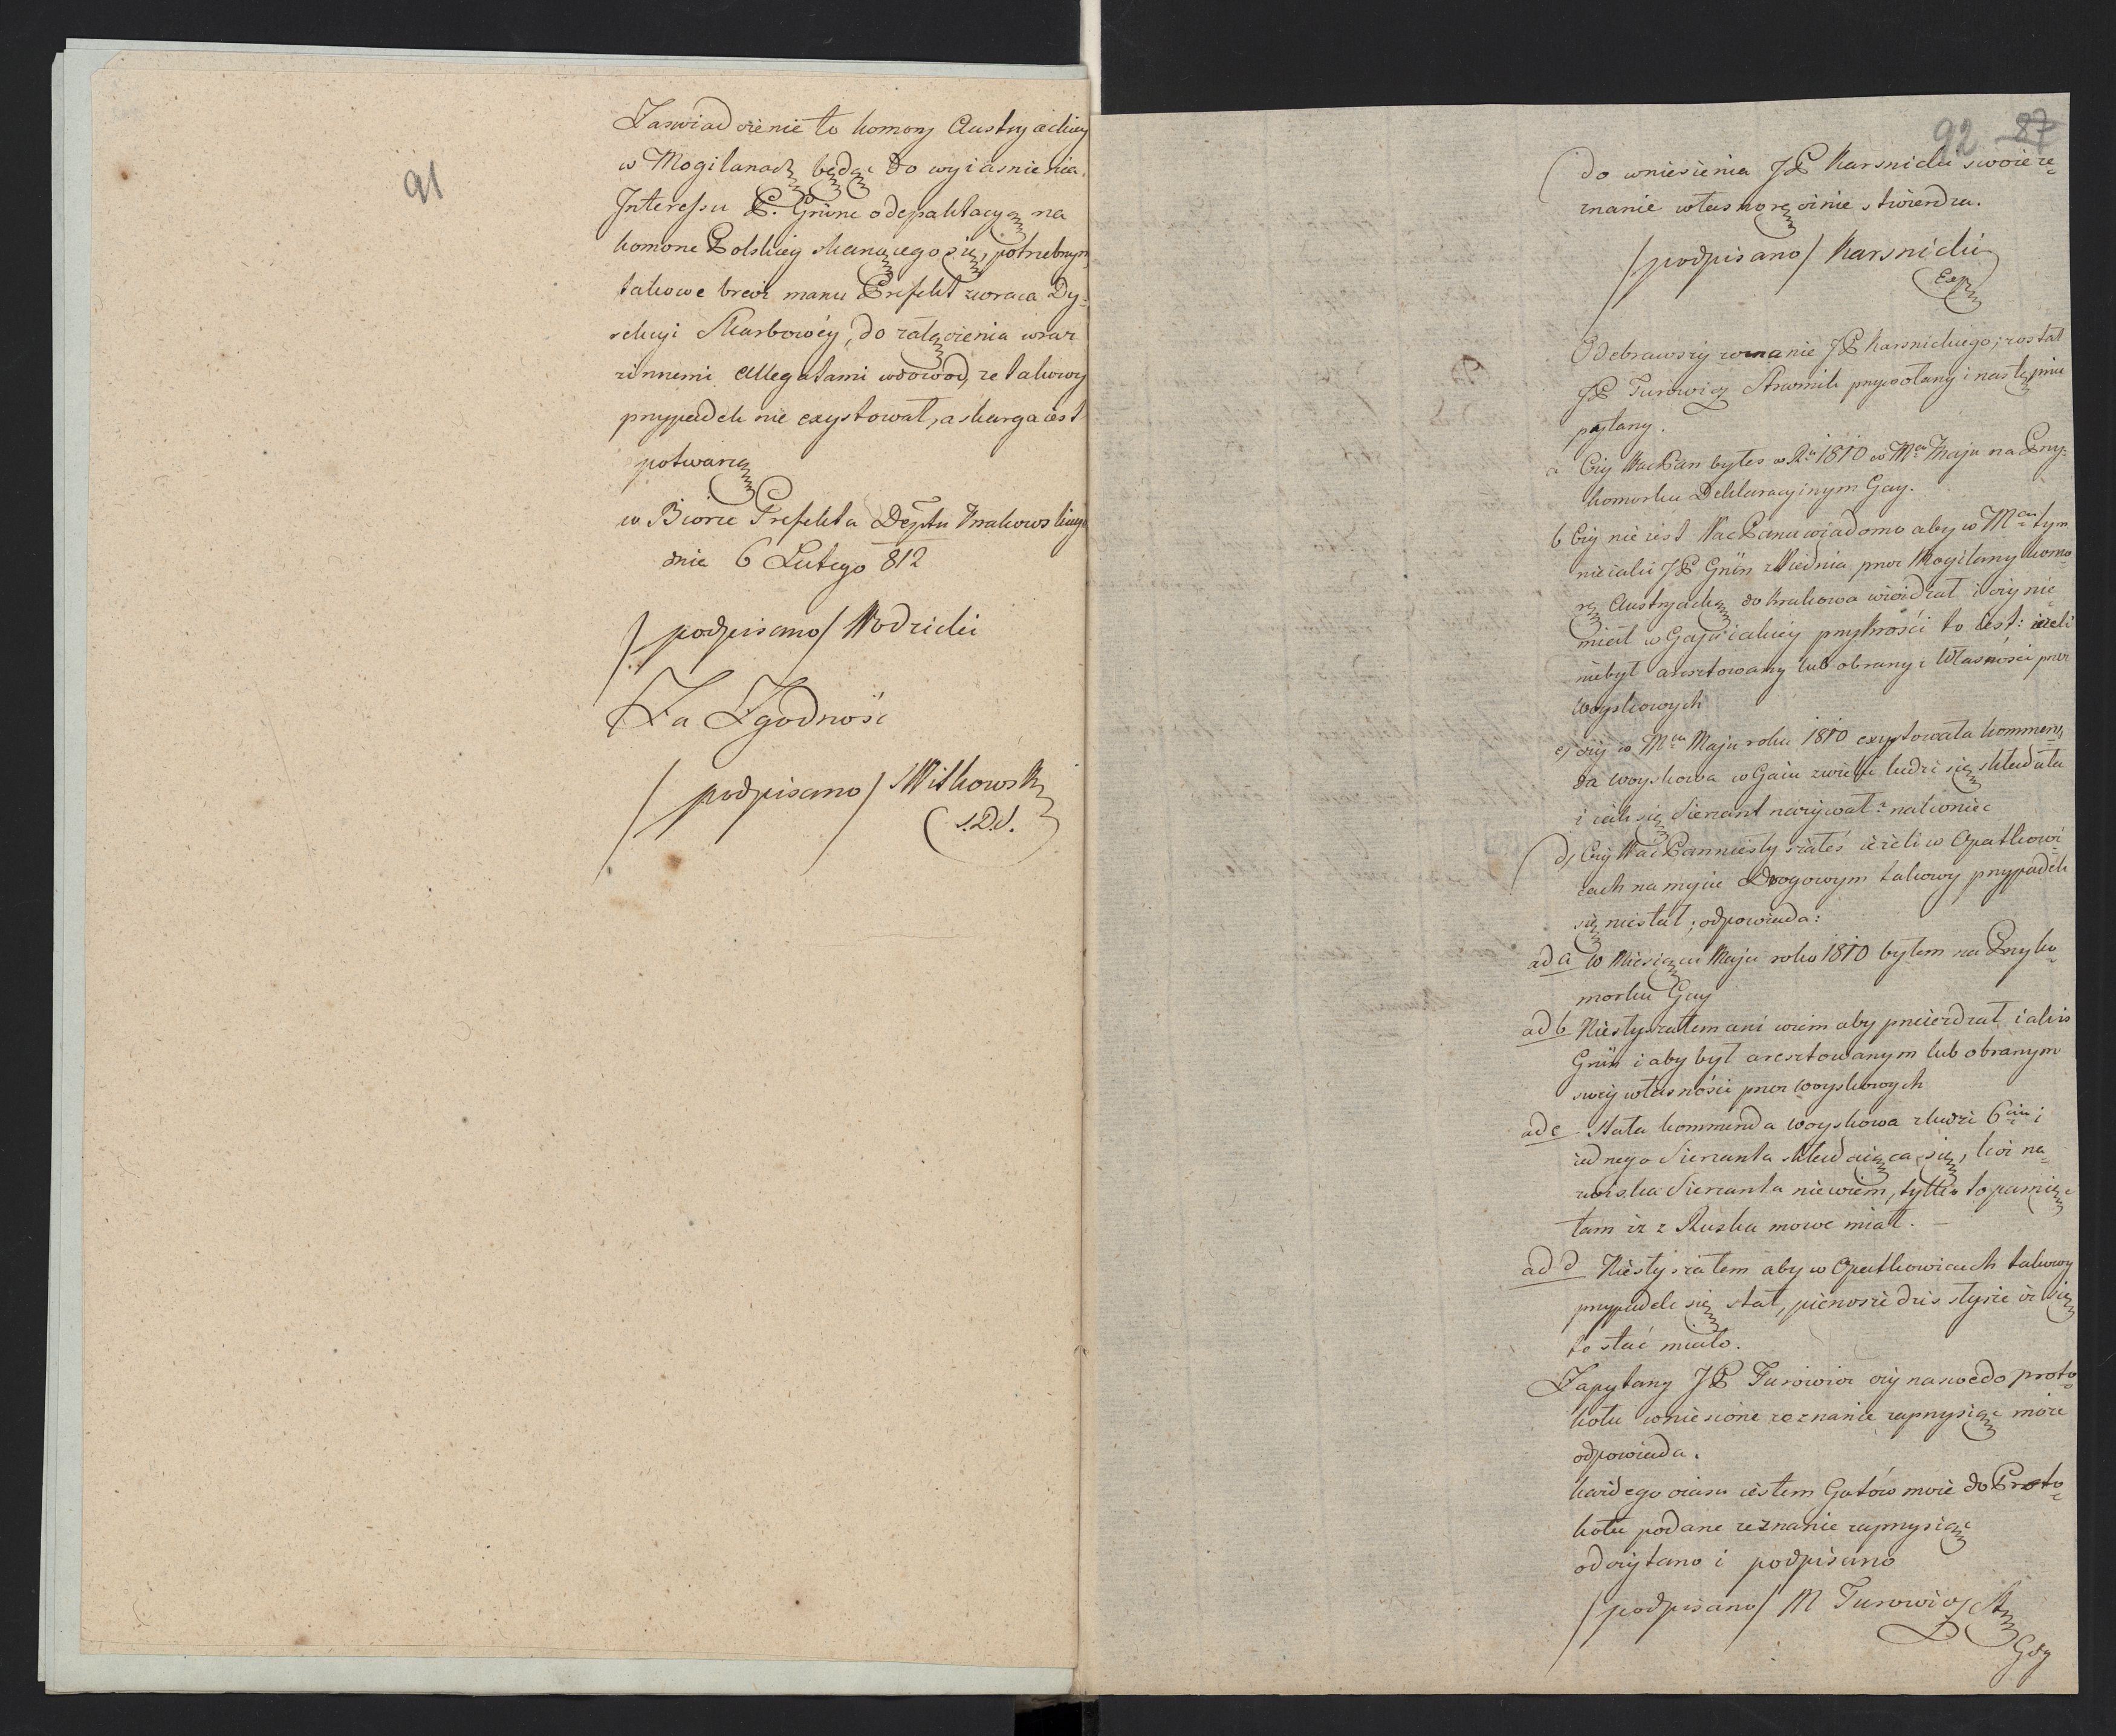 91
Zaswiadczenie to komory Austryackiey
w Mogilanach będąc do wyiasnienia
Interessu P. Grüne o depaktacyą na
komorze Polskiey skarzącego się, potrzebnym
takowe brevi manu Prefekt zwraca Dy-
rekcyi Skarbowéy, do załączenia wraz
zinnemi Allegatami wdowod, ze takowy
przypadek nie exystował, a skarga iest
potwarzą
w Biorze Prefekta Deptu Krakowskiego
dnia 6 Lutego 812
/podpisano/ Wodzicki
Za Zgodność
/podpisano/ Witkowski
S.D.S.
92 87
do wniesienia JP Karsnicki swoie ze-
znanie własnoręcznie stwierdza.
/podpisano/ Karsnicki
Exp
Odebrawszy zeznanie JP Karsnickiego, został
JP Turowicz Straznik przywołany i następnie
pytany.
a Czy WacPan byłes w Ru 1810 w Mcu Maju na Przy-
komorku Deklaracyinym Gay.
b Czy nie iest WacPanu wiadomo aby w Mcu tym
nieiaki JP Grün z Wiednia przez Mogilany komo-
rę Austryacką do Krakowa wieżdzał i czy nie
miał w Gaju iakiey przykrości to iest: iezeli
niebył aresztowany lub obrany z Własności przez
Woyskowych
c) czy w Mcu Maju roku 1810 exystowała kommen-
da woyskowa w Gaiu zwielu ludzi się składała
i iak się Sierzant nazywał? nakoniec
d) Czy WacPan niesłyszałeś iezeli w Opatkowi-
cach na mycie Drogowym takowy przypadek
się niestał; odpowiada:
ad a W Miesiącu Maju roku 1810 byłem na Przyko-
morku Gay
ad b Niesłyszałem ani wiem aby przeiezdzał iakis
Grün i aby był aresztowanym lub obranym
swey własności przez Woyskowych
ad c Stała kommenda woyskowa z ludzi 6ciu i
iednego Sierzanta składaiąca się, lecz na-
zwiska Sierzanta niewiem, tylko to pamię-
tam iz z Ruska mowe miał. —
ad d Niesłyszałem aby w Opatkowicach takowy
przypadek się stał, pierwsze dzis słysze iz się
to stać miało.
Zapytany JP Turowicz czy na swe do proto-
kołu wniesione zeznanie zaprzysiąc moze
odpowiada.
kazdego czasu iestem Gotów moie do Proto-
kołu podane zeznanie zaprzysiąc
odczytano i podpisano
/podpisano/ M Turowicz St
Gay